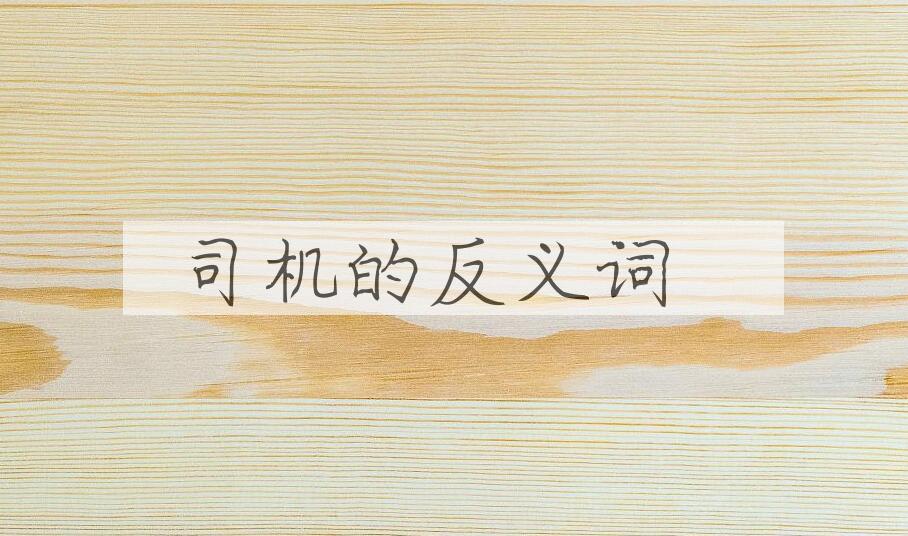 司机的反义词